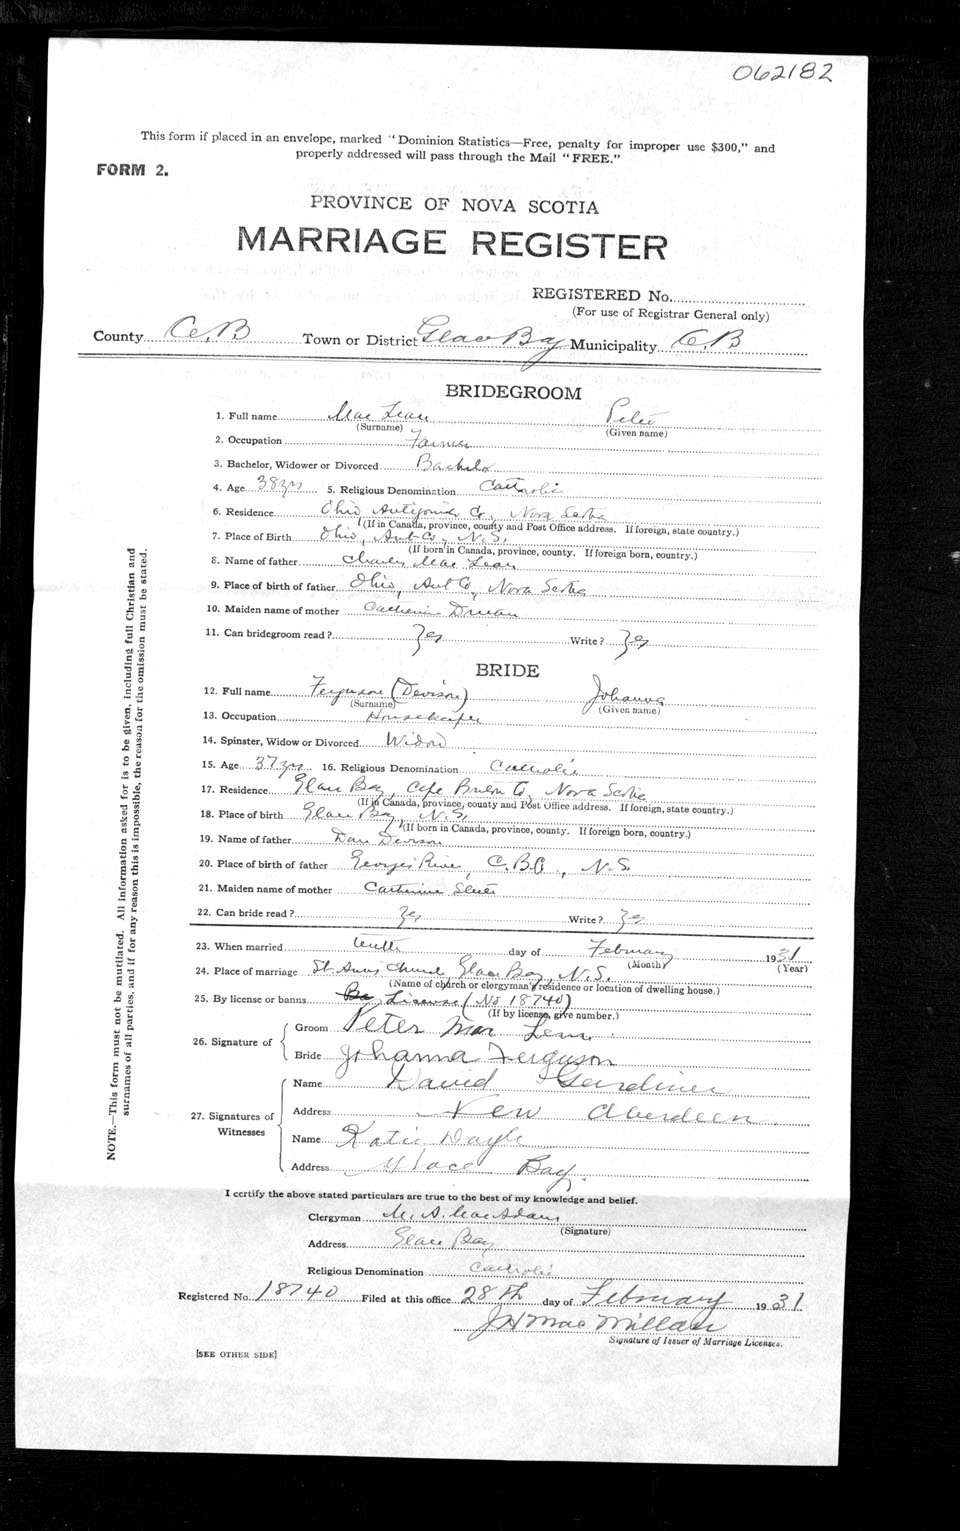 062182
This form if placed in an envelope, marked "Dominion Statistics—Free, penalty for improper use $300," and
properly addressed will pass through the Mail "FREE."
FORM 2.
PROVINCE OF NOVA SCOTIA
MARRIAGE REGISTER
REGISTERED No.
(For use of Registrar General only)
County C.B Town or District Glace Bay Municipality C.B
BRIDEGROOM
1. Full name Mac Lean Peter
(Surname) (Given name)
2. Occupation Farmer
3. Bachelor, Widower or Divorced Bachelor
4. Age 38 yrs 5. Religious Denomination Catholic
6. Residence Ohio, Antigonish Co, Nova Scotia
(If in Canada, province, county and Post Office address. If foreign, state country.)
7. Place of Birth Ohio, Ant Co, N.S.
(If born in Canada, province, county. If foreign born, country.)
8. Name of father Charles Mac Lean
9. Place of birth of father Ohio, Ant Co, Nova Scotia
10. Maiden name of mother Catherine
11. Can bridegroom read? Yes Write? Yes
BRIDE
12. Full name Ferguson (Devison) Johanna
(Surname) (Given name)
13. Occupation Housekeeper
14. Spinster, Widow or Divorced Widow
15. Age 37 yrs 16. Religious Denomination Catholic
17. Residence Glace Bay, Cape Breton Co, Nova Scotia
(If in Canada, province, county and Post Office address. If foreign, state country.)
18. Place of birth Glace Bay, N.S.
(If born in Canada, province, county. If foreign born, country.)
19. Name of father Dan Devison
20. Place of birth of father Georges River, C.B.Co., N.S.
21. Maiden name of mother Catherine
22. Can bride read? Yes Write? Yes
23. When married tenth day of February 1931
(Month) (Year)
24. Place of marriage St. Anns Church Glace Bay, N.S.
(Name of church or clergyman's residence or location of dwelling house.)
25. By license or banns License (No 18740)
(If by license, give number.)
26. Signature of Groom Peter Mac Lean
Bride Johanna Ferguson
27. Signatures of Witnesses Name David Gardiner
Address New Aberdeen
Name Katie Doyle
Address Glace Bay.
I certify the above stated particulars are true to the best of my knowledge and belief.
Clergyman M. A. MacAdam
(Signature)
Address Glace Bay
Religious Denomination Catholic
Registered No. 18740 Filed at this office 28th day of February 1931
J H MacMillan
Signature of Issuer of Marriage Licenses.
[SEE OTHER SIDE]
NOTE.—This form must not be mutilated. All information asked for is to be given, including full Christian and
surnames of all parties, and if for any reason this is impossible, the reason for the omission must be stated.